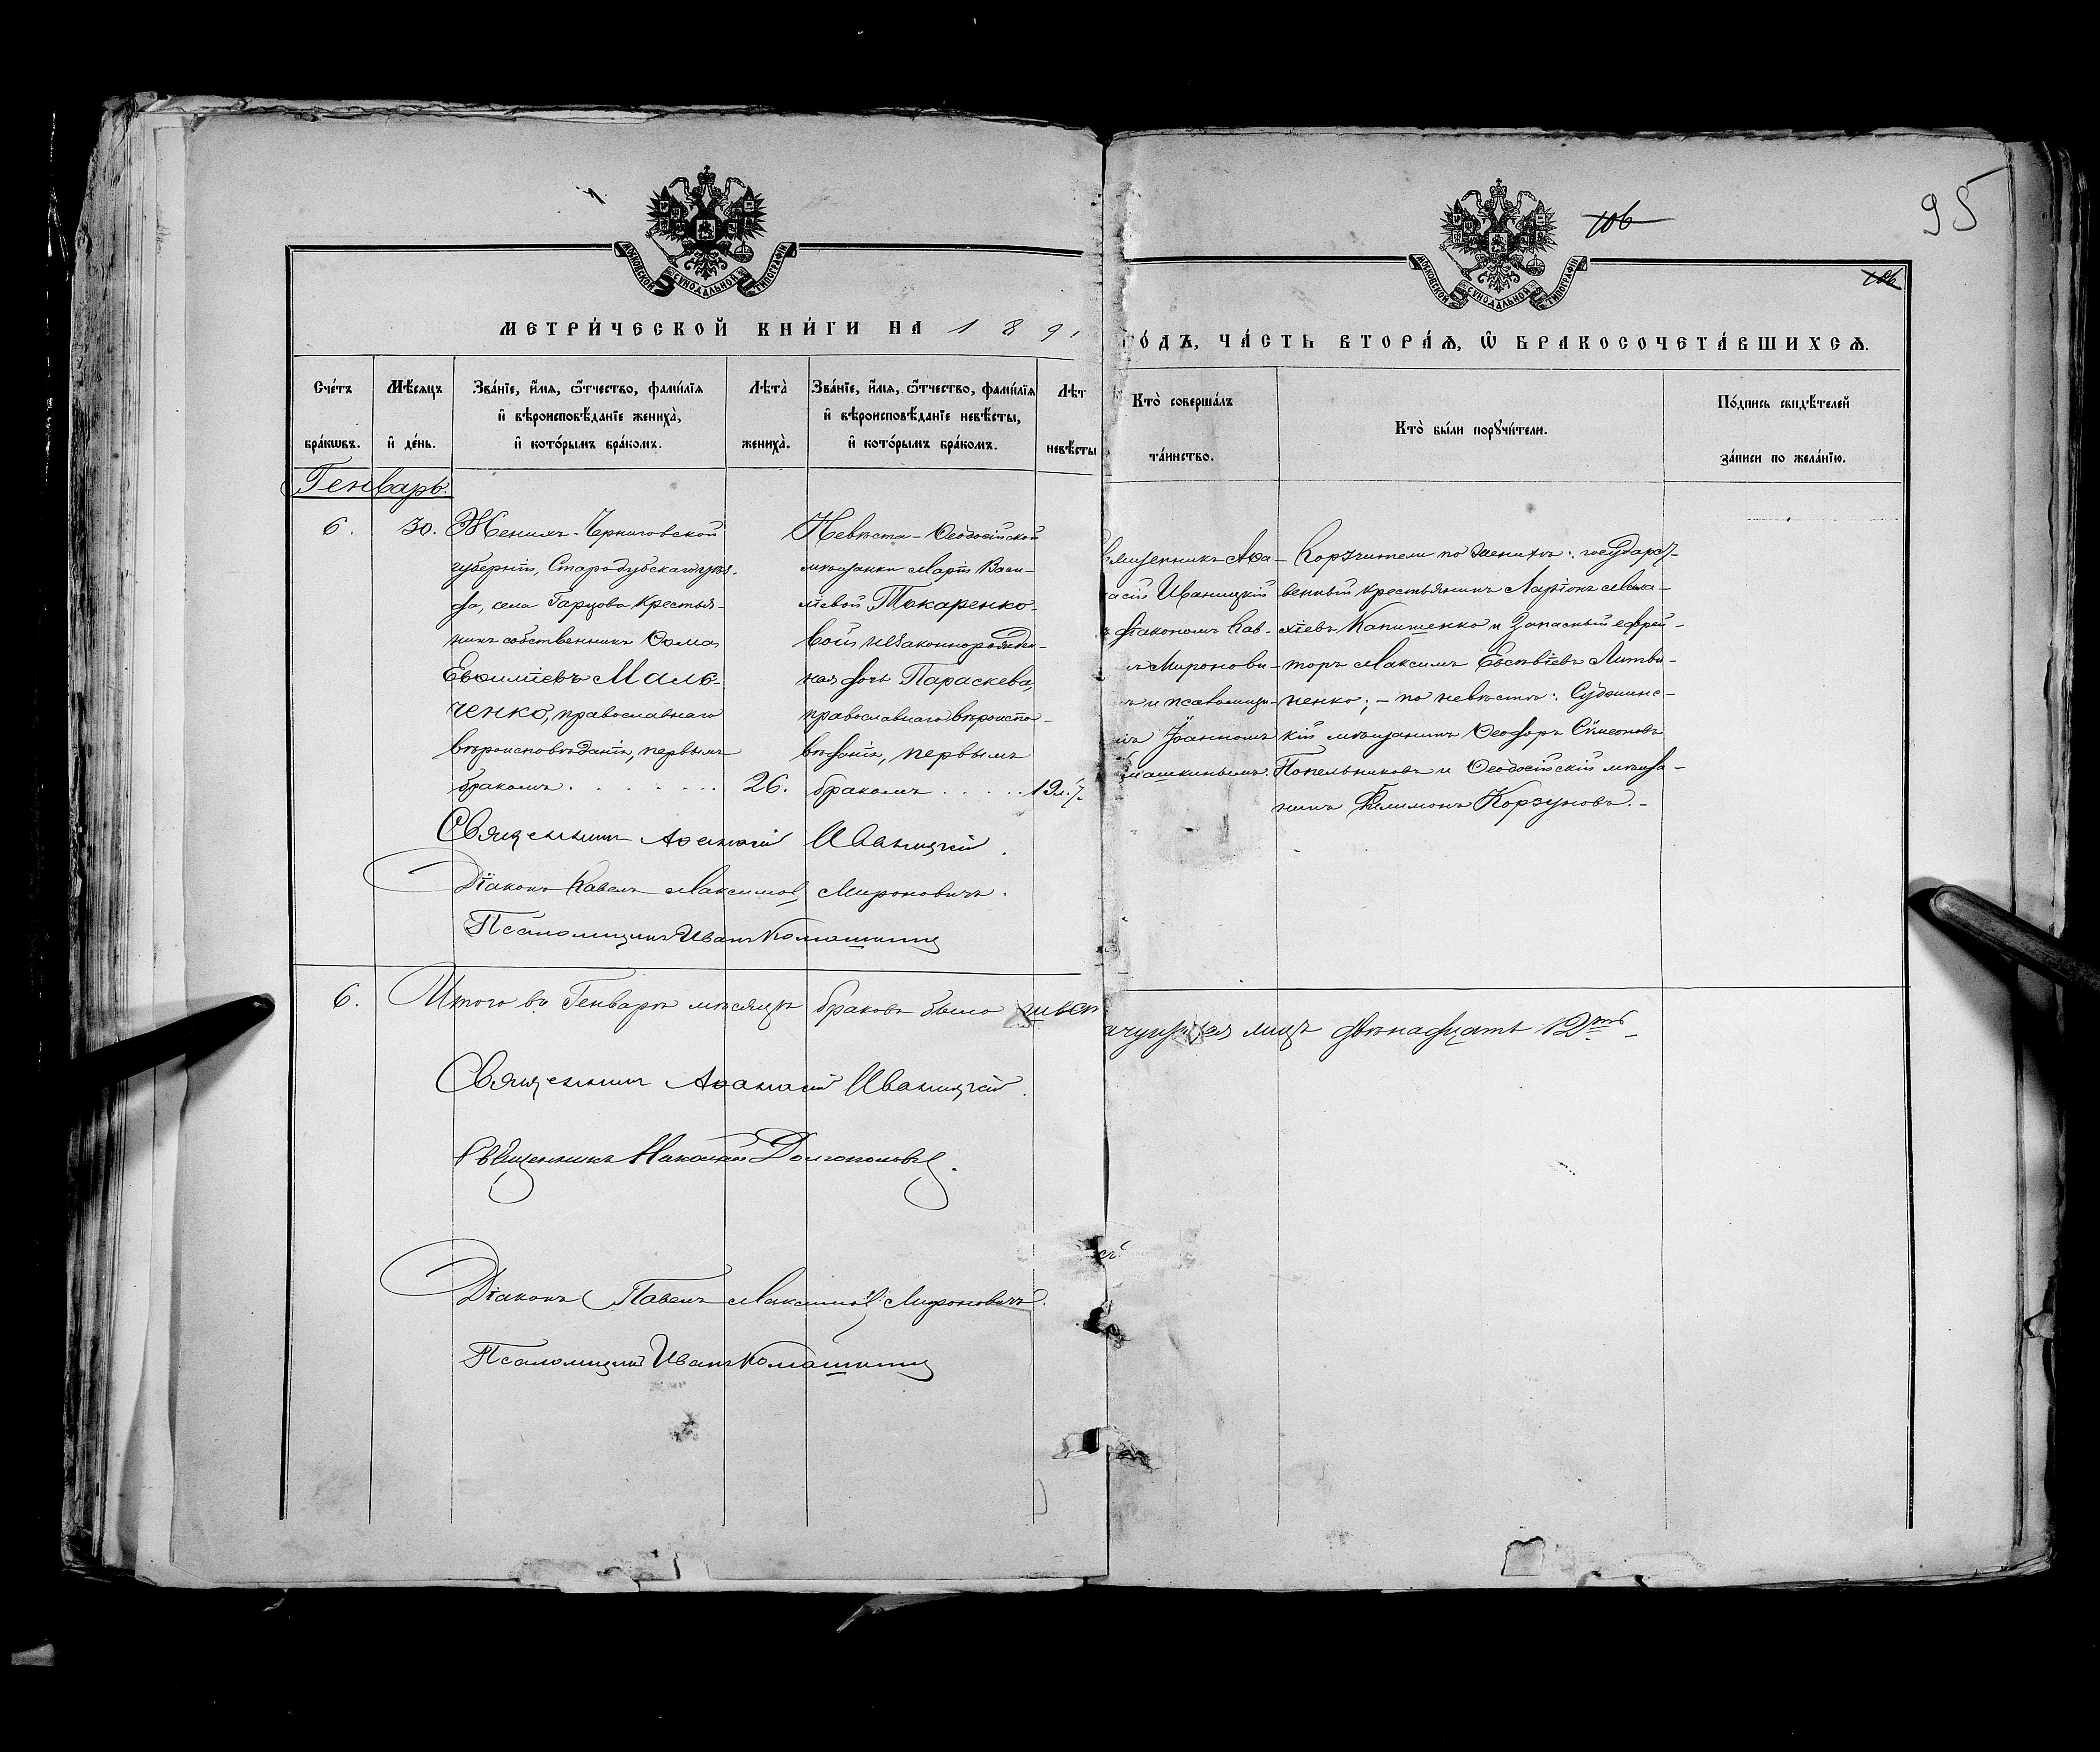 106
95
106
МОСКОВСКОЙ СѴНОДАЛЬНОЙ ТИПОГРАФІИ
МОСКОВСКОЙ СѴНОДАЛЬНОЙ ТИПОГРАФІИ
МЕТРИ́ЧЕСКОЙ КНИ́ГИ НА 1891
ГО́ДЪ, ЧА́СТЬ ВТОРА́Ѧ, Ѽ БРАКОСОЧЕТА́ВШИХСѦ.
Сче́тъ бра́кѡвъ.
Мѣ́сяцъ и҆ де́нь.
Зва́нїе, и҆́мѧ, ѻ҆́тчество, фами́лїѧ
и҆ вѣроисповѣ́данїе жениха̀,
и҆ кото́рымъ бра́комъ.
Лѣта̀ жениха̀.
Зва́нїе, и҆́мѧ, ѻ҆́тчество, фами́лїѧ
и҆ вѣроисповѣ́данїе невѣ́сты,
и҆ кото́рымъ бра́комъ.
Лѣт невѣ́сты
Кто̀ соверша́лъ та́инство.
Кто̀ бы́ли порꙋчи́тели.
По́дпись свидѣ́телей
за́писи по жела́нїю.
Генварь.
6.
30.
Женихъ - Черниговской
губерніи, Стародубскаго уѣз-
да, села Гарцова крестья-
нинъ собственникъ Ѳома
Евѳиміевъ Маль-
ченко, православнаго
вѣроисповѣданія, первымъ
бракомъ . . . . . . .
26.
Невѣста - Ѳеодосійской
мѣщанки Марѳы Васи-
ліевой Токаренко-
вой незаконнорожден-
ная дочь Параскева,
православнаго вѣроиспо-
вѣданія, первымъ
бракомъ . . . . .
19
вященникъ Аѳа-
асій Иваницкій
діакономъ Пав-
ъ Миронови-
ъ и псаломщи-
мъ Іоанномъ
машкинымъ.
Поручители по женихѣ: государст-
венный крестьянинъ Ларіонъ Мала-
хіевъ Капишенко и запасный ефрей-
торъ Максимъ Евсѣвіевъ Литви-
ненко; - по невѣстѣ: Суджинс-
кій мѣщанинъ Ѳеодоръ Сѵмеоновъ
Попельниковъ и Ѳеодосійскій мѣща-
нинъ Филимонъ Корзуновъ. -
Священникъ Аѳанасій Иваницкій.
Діаконъ Павелъ Максимов. Мироновичъ.
Псаломщикъ Иванъ Комашкинъ
6.
Итого въ Генварѣ мѣсяцѣ браковъ было шест
лицъ двѣнадцать 12ть -
Священникъ Аѳанасій Иваницкій.
Священникъ Николай Долгополовъ.
Діаконъ Павелъ Максимов. Мироновичъ.
Псаломщикъ Иванъ Комашкинъ